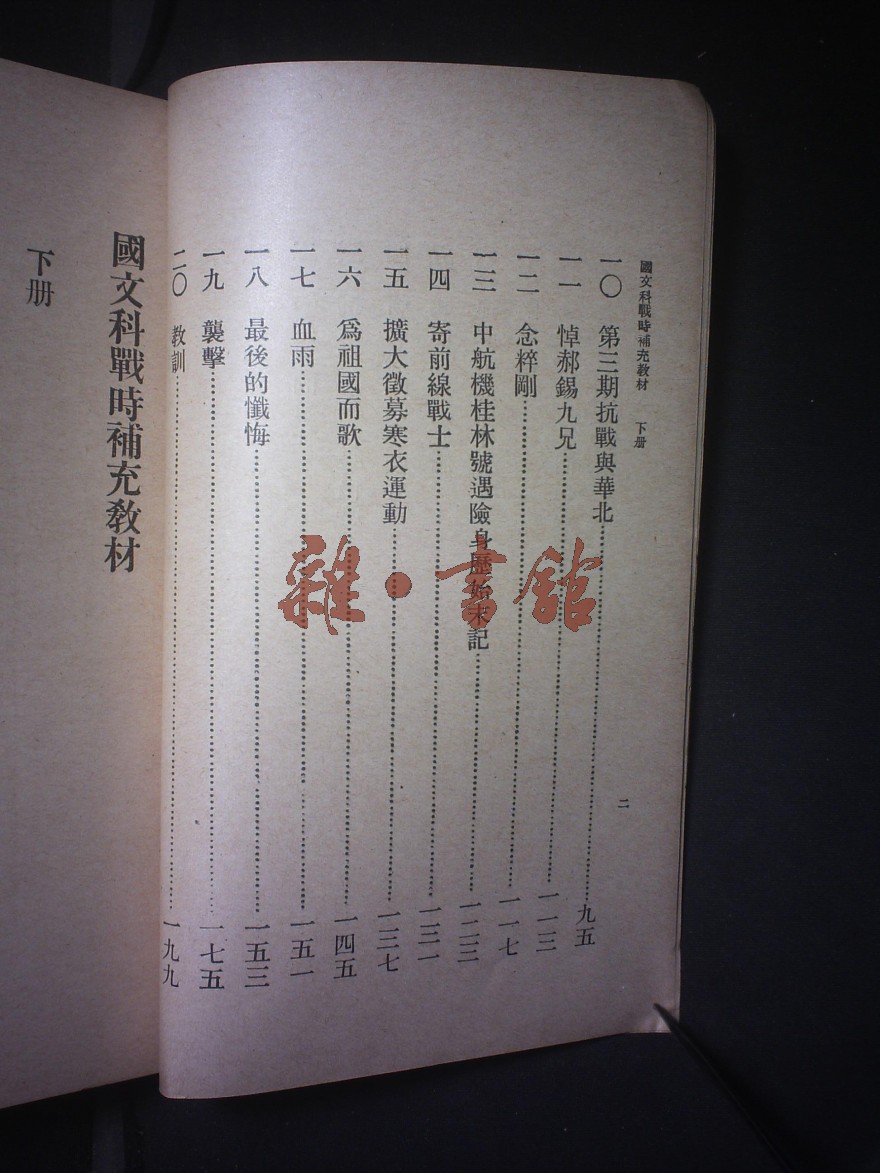 國文科戰時補充教材 下册
二
一〇 第三期抗戰與華北 九五
一一 悼郝錫九兄 一一三
一二 念粹剛 一一七
一三 中航機桂林號遇險身歷始末記 一二三
一四 寄前線戰士 一三一
一五 擴大徵募寒衣運動 一三七
一六 爲祖國而歌 一四五
一七 血雨 一五一
一八 最後的懺悔 一五三
一九 襲擊 一七五
二〇 教訓 一九九
國文科戰時補充教材
下册
雜·書館